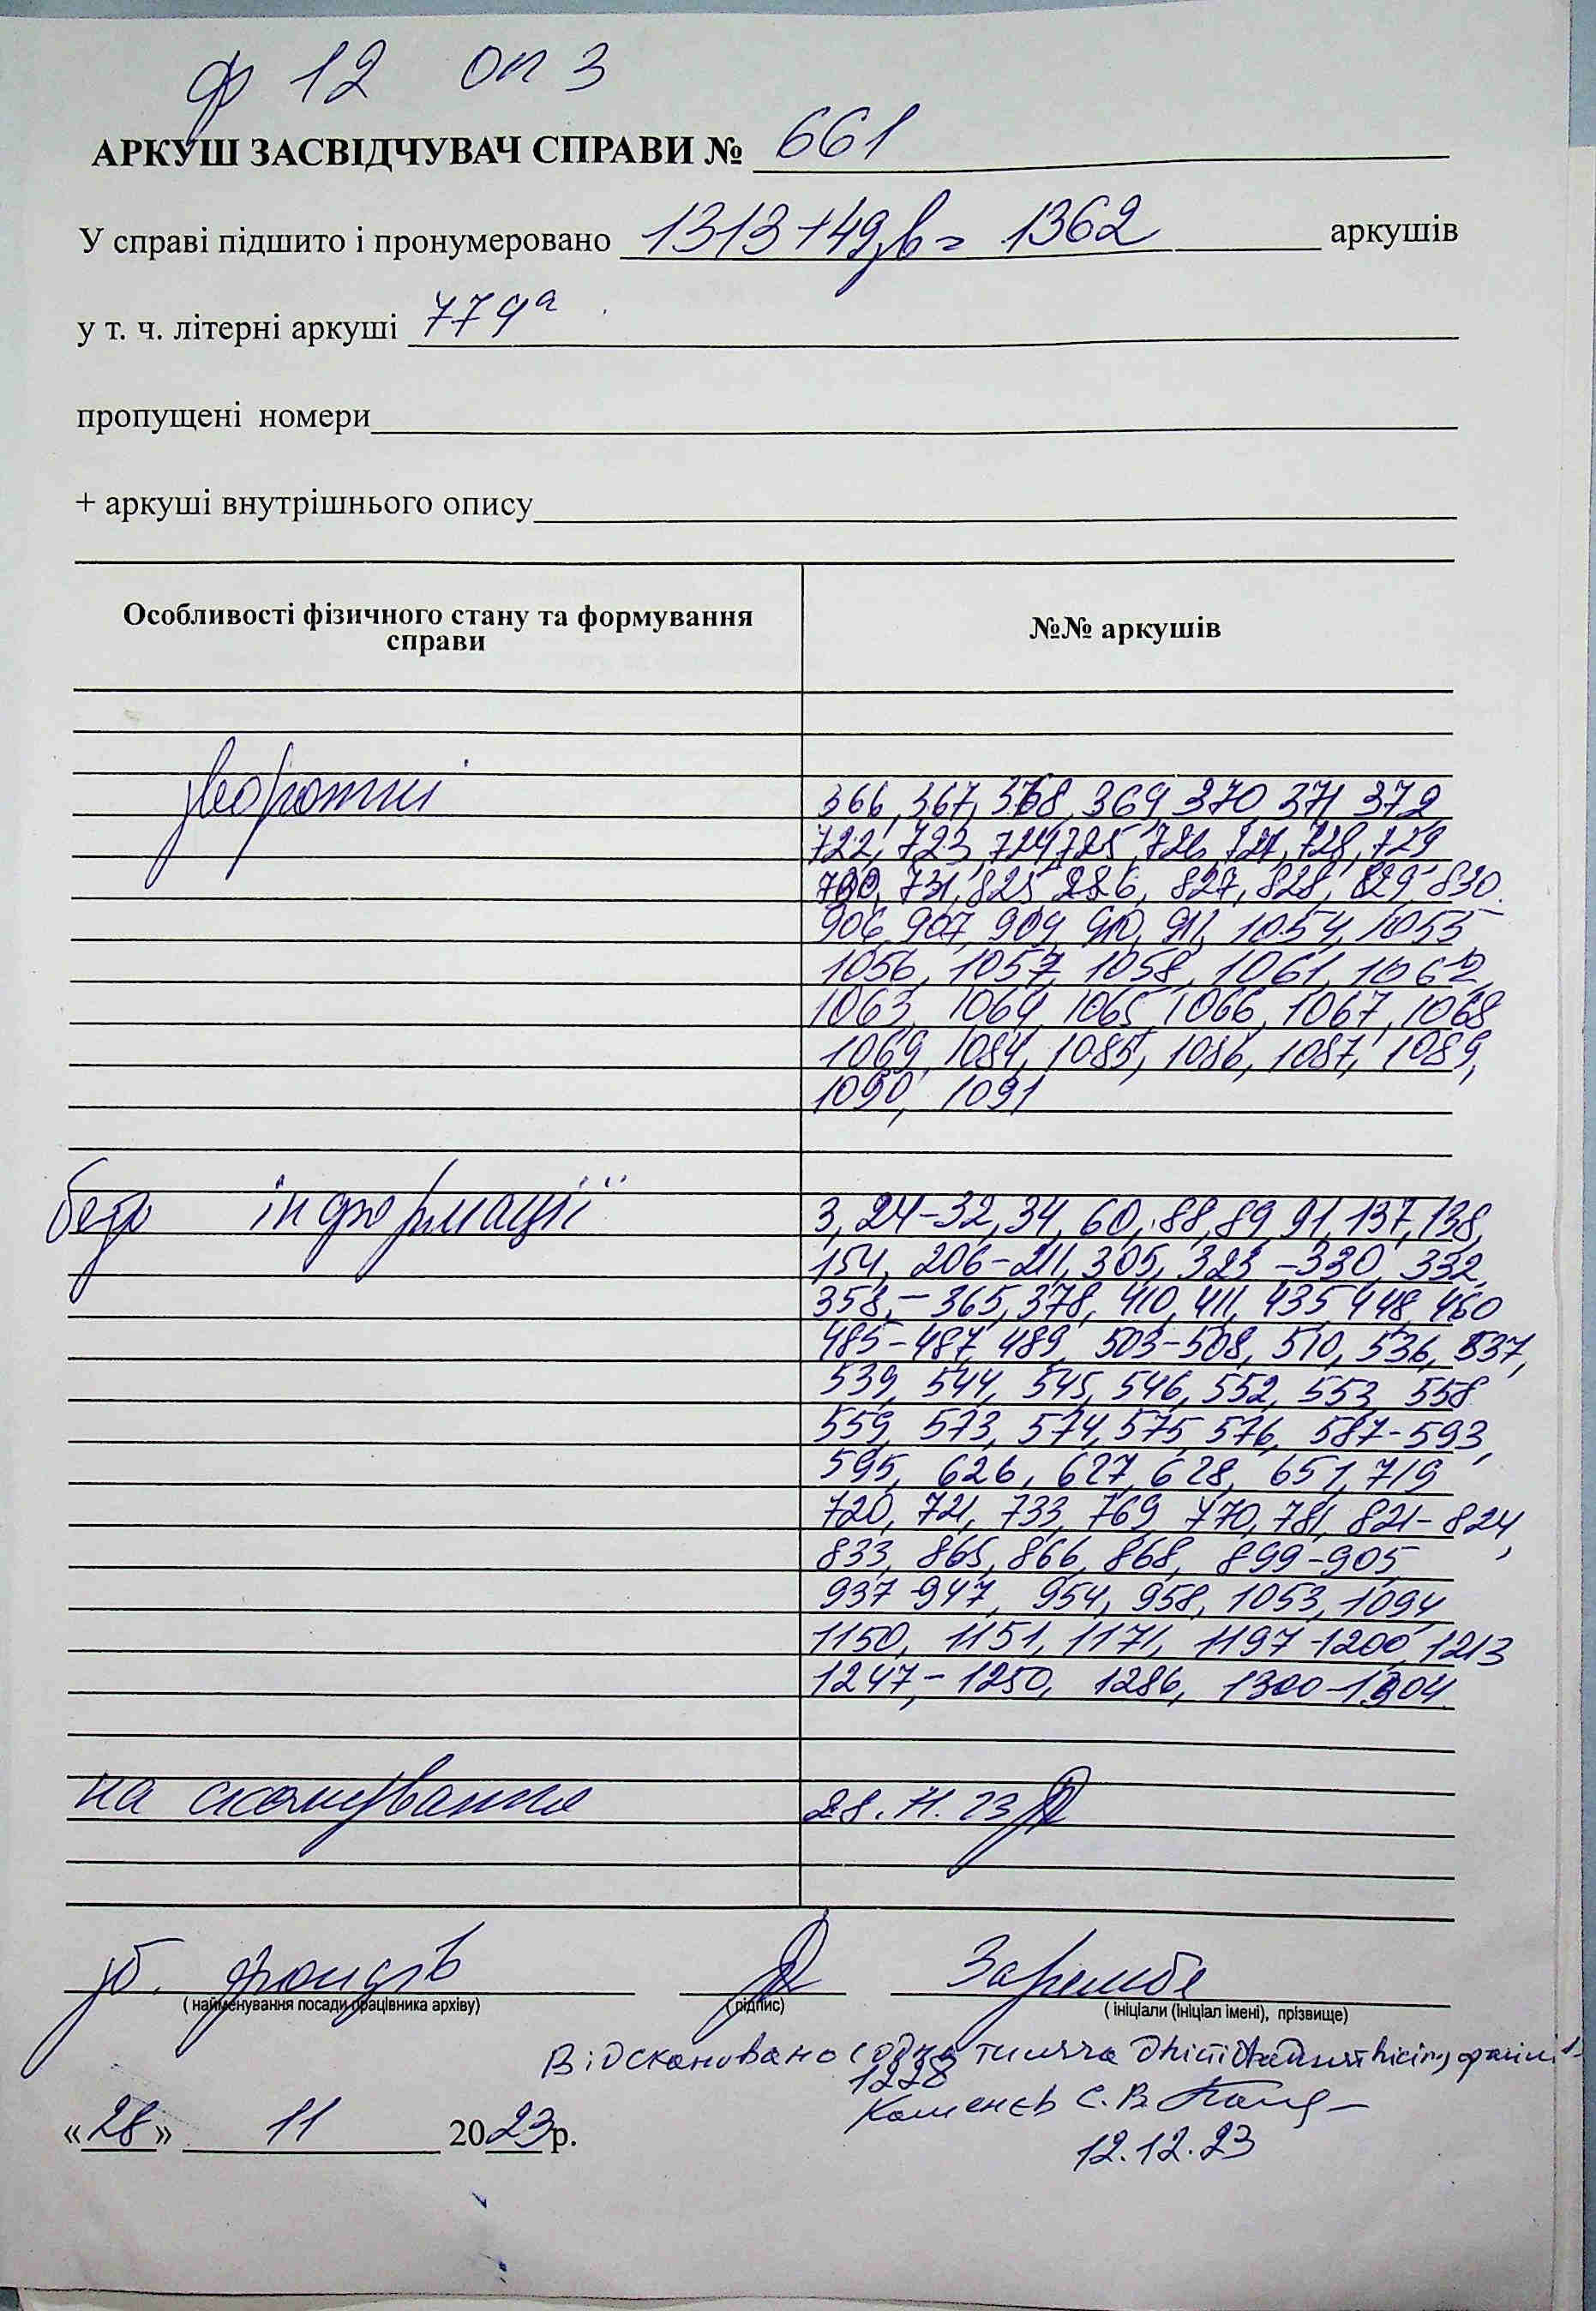 ф 12 оп 3
АРКУШ ЗАСВІДЧУВАЧ СПРАВИ № 661
У справі підшито і пронумеровано 1313+49зв= 1362 аркушів
у т. ч. літерні аркуші 779а
пропущені номери
+ аркуші внутрішнього опису
Особливості фізичного стану та формування справи
№№ аркушів
зворотні
366, 367, 368, 369, 370, 371, 372,
722, 723, 724, 725, 726, 727, 728, 729
730, 731, 825, 826, 827, 828, 829, 830.
906, 907, 909, 910, 911, 1054, 1055
1056, 1057, 1058, 1061, 1062,
1063, 1064, 1065, 1066, 1067, 1068
1069, 1084, 1085, 1086, 1087, 1089,
1090, 1091
без інформації
3, 24-32, 34, 60, 88, 89, 91, 137, 138,
154, 206-211, 305, 323-330, 332,
358,-365, 378, 410, 411, 435, 448, 460
485-487, 489, 503-508, 510, 536, 537,
539, 544, 545, 546, 552, 553, 558
559, 573, 574, 575, 576, 587-593,
595, 626, 627, 628, 651, 719
720, 721, 733, 769, 770, 781, 821-824,
833, 865, 866, 868, 899-905,
937-947, 954, 958, 1053, 1094,
1150, 1151, 1171, 1197-1200, 1213
1247,-1250, 1286, 1300-1304
на сканування 28.11.23
зб. фондів Заремба
( найменування посади працівника архіву) (підпис) ( ініціали (ініціал імені), прізвище)
Відскановано (одна тисяча
1228
Каменєв С.В.
«28» 11 2023р.
12.12.23